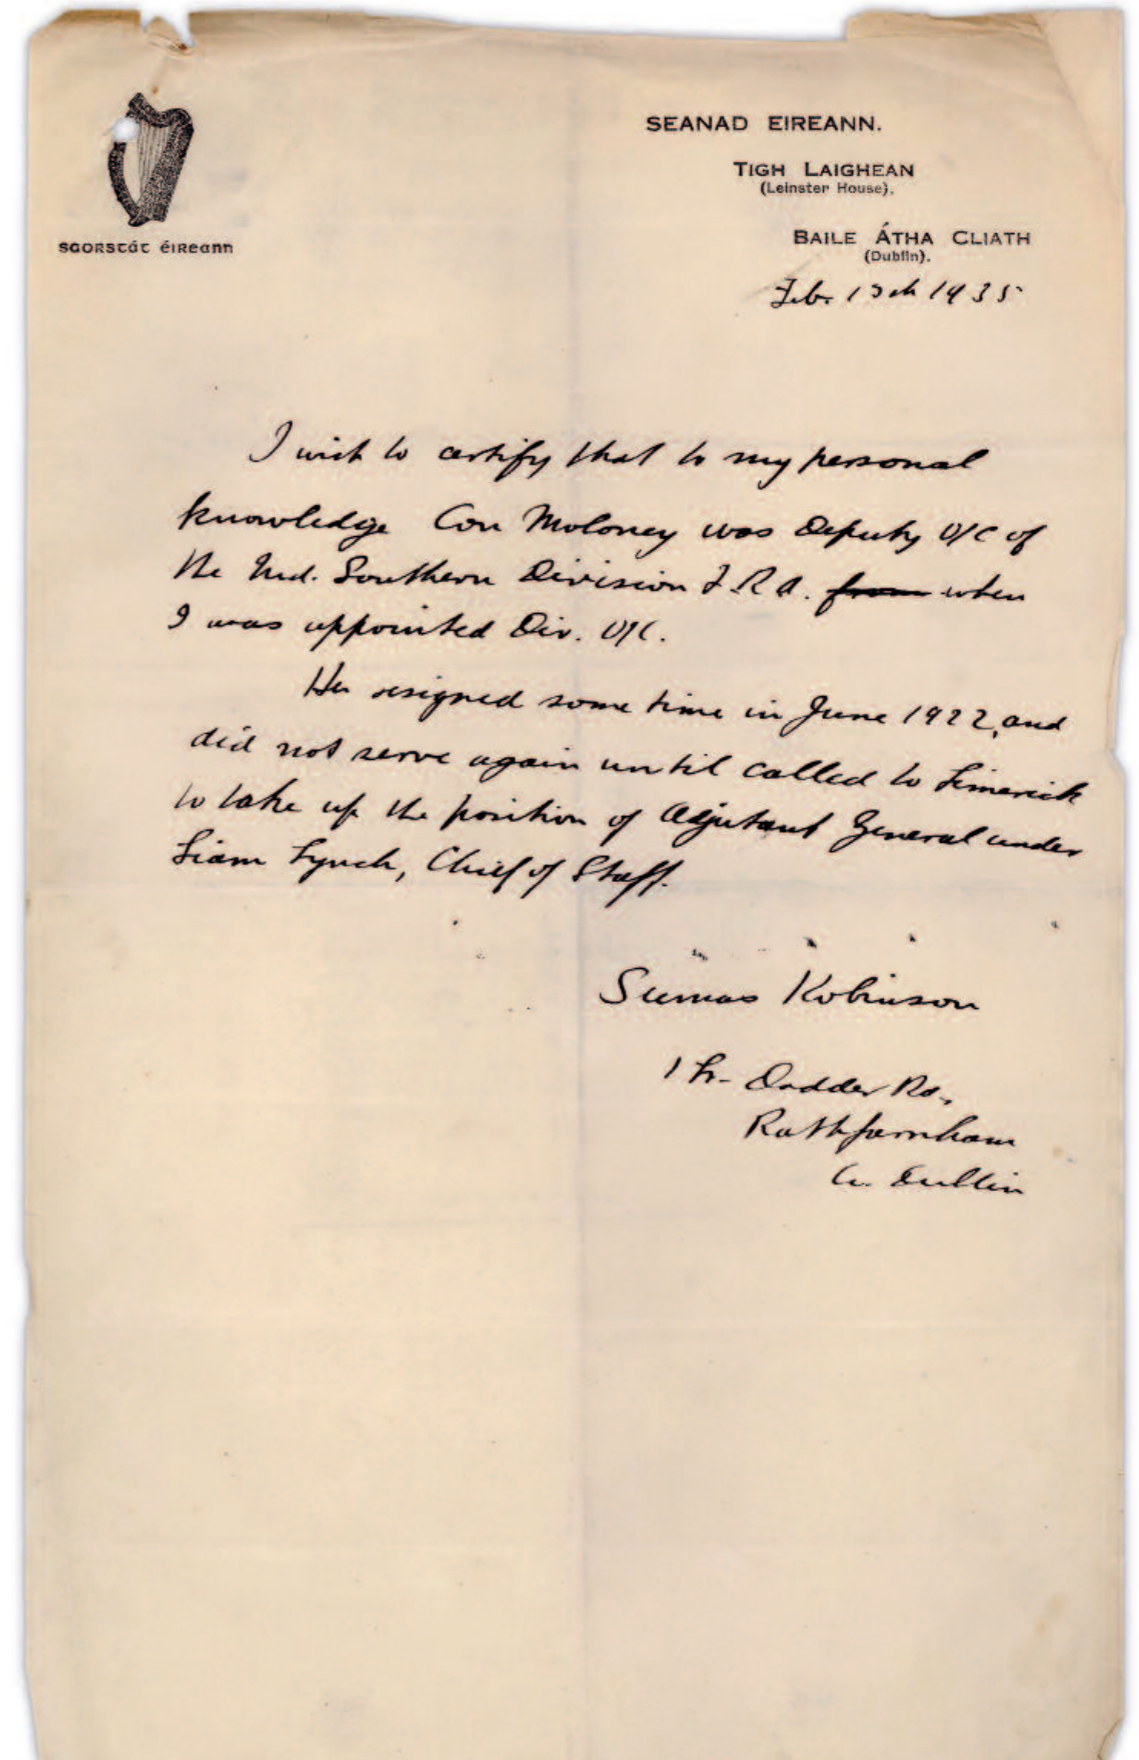 SEANAD EIREANN.
TIGH LAIGHEAN
(Leinster House).
SAORSTÁT ÉIREANN
BAILE ÁTHA CLIATH
(Dublin).
Feb. 1935
I wish to certify that to my personal
knowledge Con Moloney was Deputy O/C of
the 2nd. Southern Division I.R.A. from when
I was appointed Div. O/C.
He resigned some time in June 1922, and
did not serve again until called to Limerick
to take up the position of Adjutant General under
Liam Lynch, Chief of Staff.
Seumas Robinson
1 Dodder Rd.,
Rathfarnham
Co. Dublin